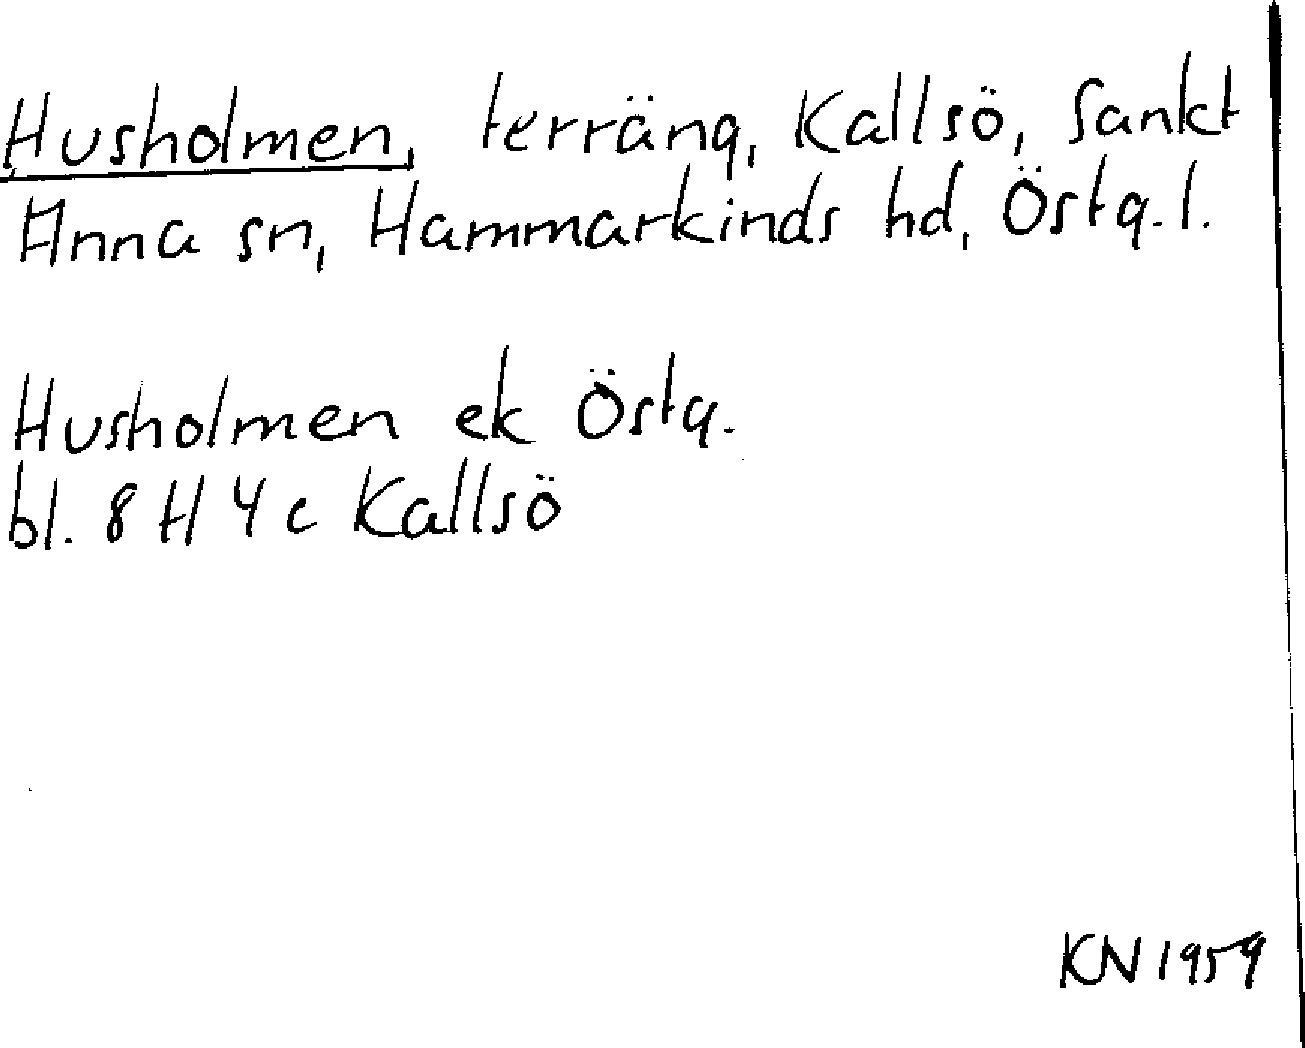 Husholmen, terräng, Kallsö, Sankt
Anna sn, Hammarkinds hd, Östg. l.
Husholmen ek Östg.
bl. 8 H 4 c Kallsö
KN 1959